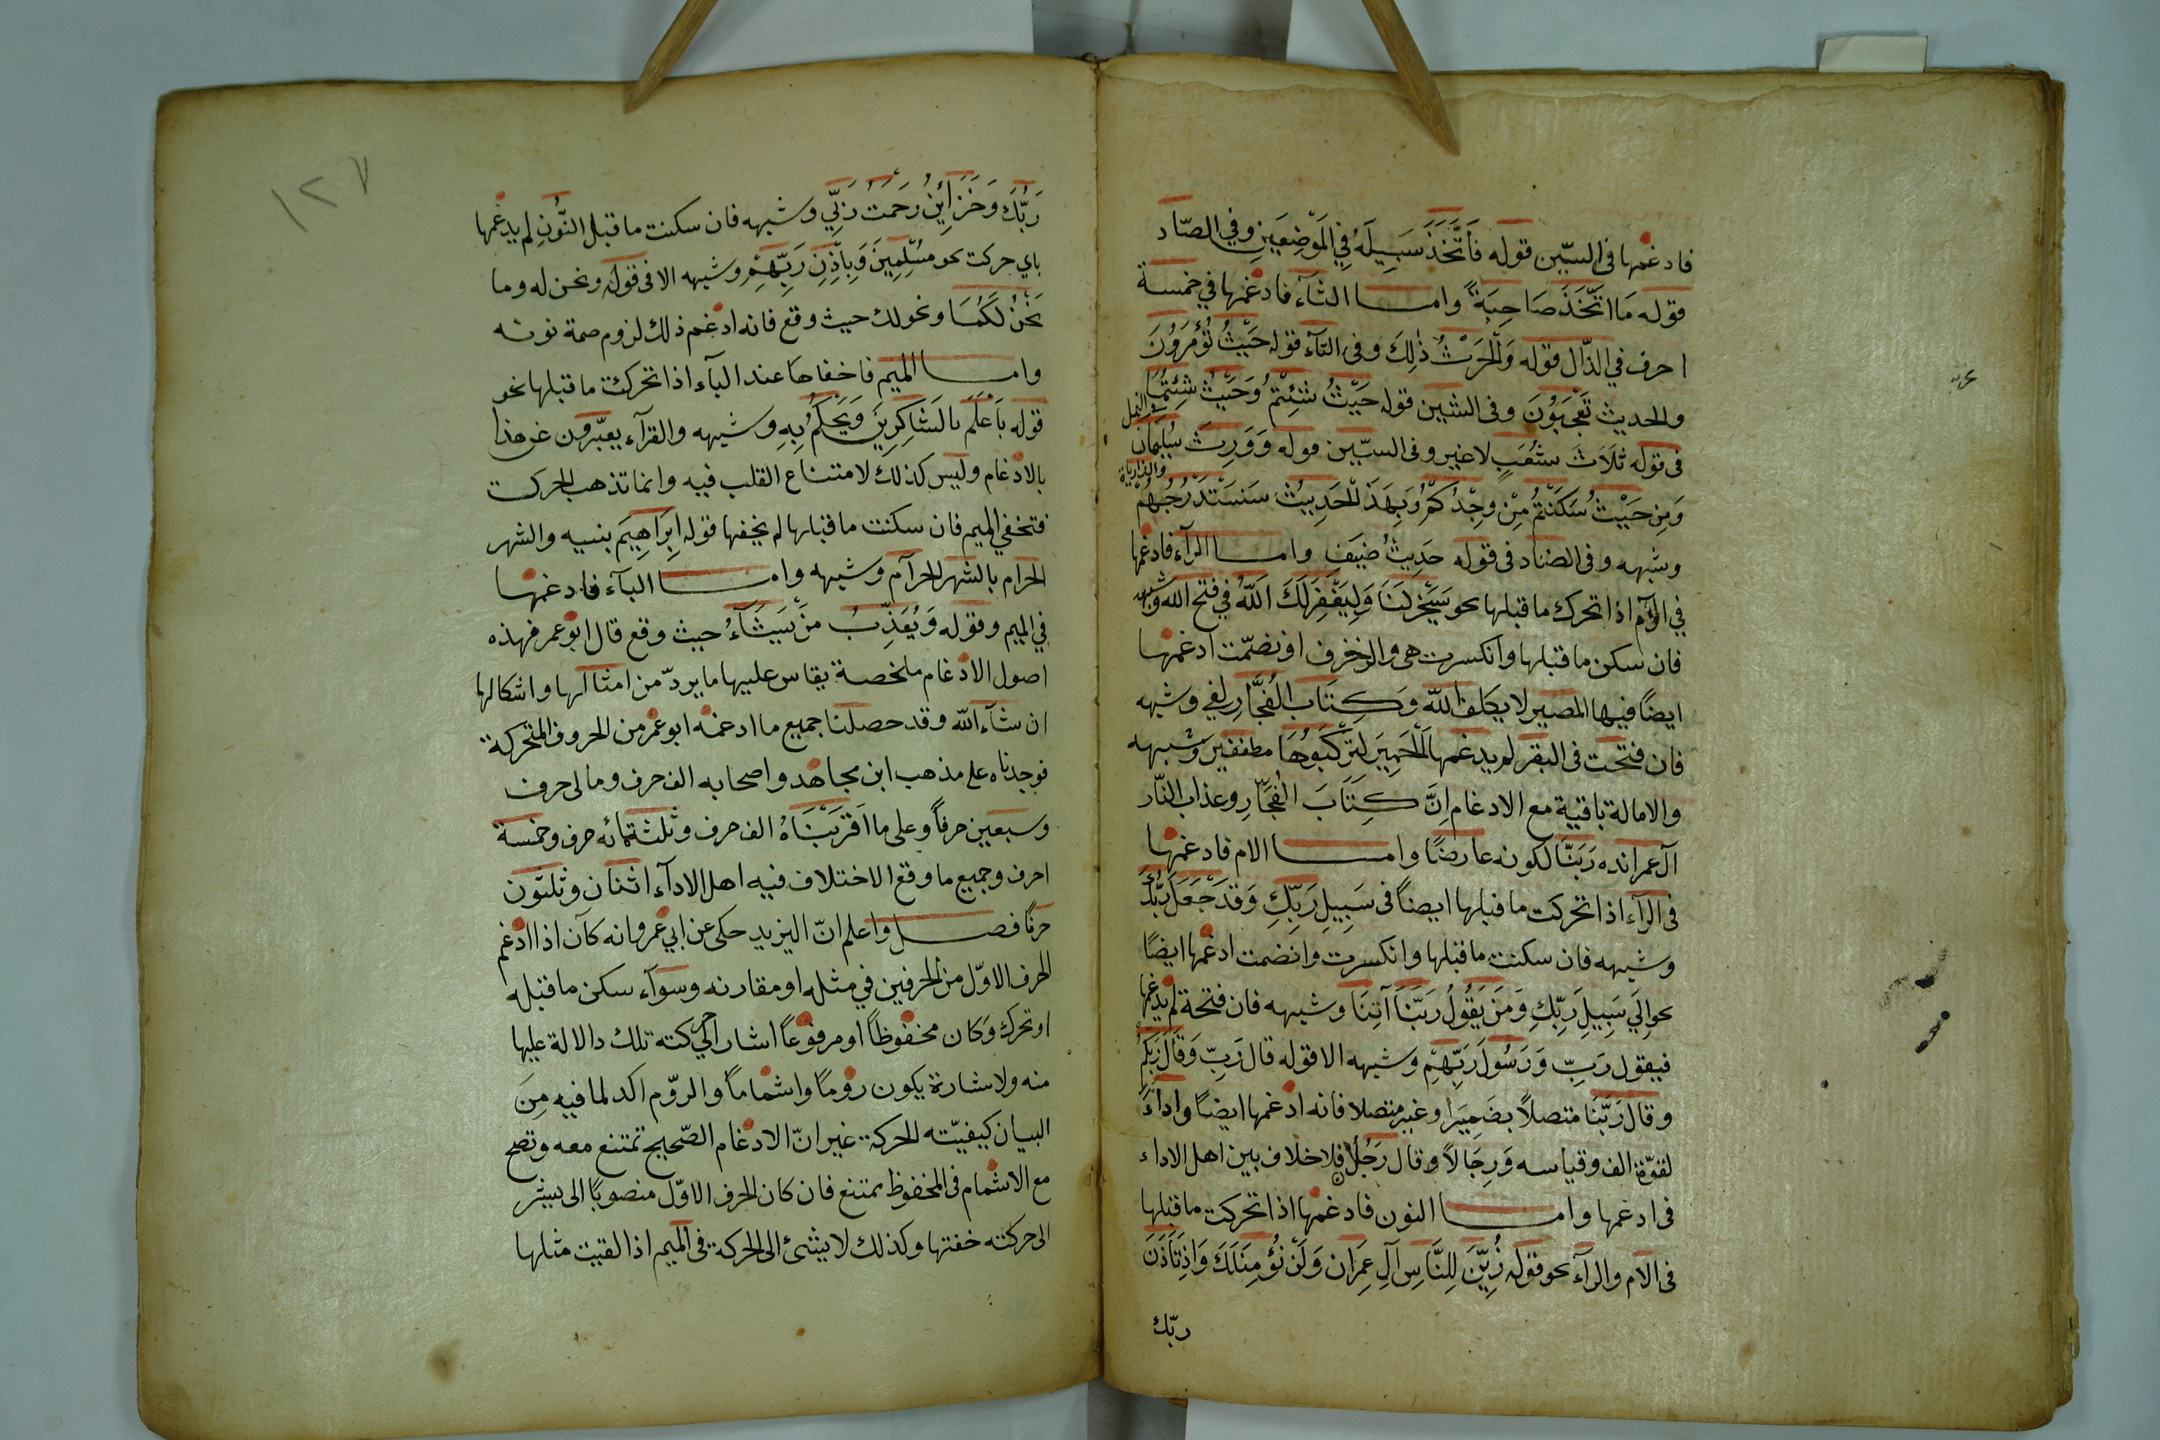 فادغمها فى السّين قوله فَاتَّخَذَ سَبِيلَهُ فِي الْمَوْضِعَينِ وفي الصّاد
قوله مَا اتَّخَذَ صَاحِبَةً وامـــا الثآء فادغمها في خمسة
احرف في الذّال قوله وَالْحَرْثُ ذٰلِكَ وفى التآء قوله حَيْثُ تُؤْمَرُونَ
والحديث تَعْجَبُوْنَ وفى الشين قوله حَيْثُ شِئْتُمْ وَحَيْثُ شِئْتُمَا
فى قوله ثَلَاثَ شُعَبٍ لاغير وفى السّين قوله وَوَرِثَ سُلَيْمَان
في النمل
وَمِن حَيْثُ سَكَنْتُمْ مِنْ وِجْدُكُمْ وَبِهَذَ لْحَدِيثْ سَنَسْتَدْرُجُهُمْ
وشبهه وفى الضاد فى قوله حَدِيثُ ضَيْفِ وامـــا الرآء فادغمها
في الّام اذا تحرك ما قبلها نحو سَيُّخِّرَلَنَا وَلِيَغْفِرَلَكَ اللّهُ في فتح الله وشبهه
فان سكن ما قبلها وانكسرت هى والزخرف او نضمّت ادغمها
ايضًا فيها المصير لا يكلف اللّه وَكِتَابَ الْفُجَّارِ لفي وشبهه
فان فتحت فى البقر لم يدغمها اَلْحَمِيَر لِتَرْكَبُوْهَا مطففين وشبهه
والامالة باقية مع الادغام اِنَّ كِتَابَ الْفُجَّارِ وعذاب النّار
آل عمران ده رَبَنَّا لكونه عارضًا وامـــا الام فادغمها
فى الرآء اذا تحركت ما قبلها ايضاً فى سَبِيلِ رَبِّكِ وَقَدَ جَعَلَ رَبُّكَ
وشبهه فان سكنت ما قبلها وانكسرت وانضمت ادغمها ايضًا
نحو اِلَي سَبِيلِ رَبِّكِ وَمَنَ يَقُولُ رَبَّنَا آتِنَا وشبهه فان فتحة لم يدغمها
فيقول رَبِّ وَرَسُولَ رَبِّهِمْ وشبهه الا قوله قال رَبِّ وَقَالَ رَبُكُمُ
وقال رَبَّنَا متصلاً بضَمِيَر وغير متصلا فانه ادغمها ايضاً واداءً
لقوّة الف وقياسه وَرِجَالاً وقال رَجُلٌ فلا خلاف بين اهل الاداء
فى ادغمها وامـــا النون فادغمها اذا تحركت ما قبلها
فى الام والرآء نحو قوله زُيِّنَ لِلنَّاسِ آلِ عِمَرَان وَلَنْ نُؤمِنَ لَكَ وَاذِتَأَذَنَ
ربّك
١٢٧
رَبُّكَ وَخَزَآئِنُ رَحَمَتُ رَبِّي وشبهه فان سكنت ما قبل النُّونِ لم يدغمها
باي حركت نحو مُسْلِمِينَ وَبِاِذْنِ رَبِّهِمْ وشبهه الا فى قوله ونحن له وما
نَحْنُ لَكُمَا ونحو لك حيث وقع فانه ادغم ذلك لزوم ضمة نونه
وامـــا الميم فاخفاها عند الباء اذا تحركت ما قبلها نحو
قوله بَاَعْلَمَ بالشَاكِرِينَ وَيَحْكُمُ بِهِ وشبهه والقرآء يعبّرون عن هذا
بالادغام وليس كذلك لامتناع القلب فيه وانما تذهب الحركت
فتخفي الميم فان سكنت ما قبلها لم يخفها قوله اِبرَاهِيمَ بنيه والشهر
الحرام بالشهر الحرآم وشبهه وامـــا البآء فادغمها
في الميم وقوله وَيُعَذِّبُ مَنَّ يَشَآءُ حيث وقع قال ابو عمر فهذه
اصول الادغام ملخصة يقاس عليها ما يردّ من امثالها واشكالها
ان شآء اللّه وقد حصلنا جميع ما ادغمه ابو عمر من الحروف المتحركة
فوجدناه على مذهب ابن مجاهد واصحابه الف حرف ومالى حرف
وسبعين حرفاً وعلى ما اَقرَبْنَاهُ الف حرف وثلثمائه حرف وخمسة
احرف وجميع ما وقع الاختلاف فيه اهل الادآء اثنان وثلثون
حرفًا فصـــل واعلم انّ اليزيد حكى عن ابي عمر وانه كآن اذا ادغم
الحرف الاوّل من الحرفين في مثله او مقاربه وسوآء سكن ما قبله
او تحرك وَكان مخفوظاً او مرفوعاً اشار الي حركته تلك دالالة عليها
منه ولاشارة يكون رومًا واشماماً والرّوم اكد لما فيه مِنَ
البيان كيفيّته الحركة غير انّ الادغام الصّحيح تمتنع معه وتصح
مع الاشمام فى المخفوظ يمتنع فان كان الحرف الاوّل منصوبًا الى يشر
الى حركته خفتها وكذلك لا يشئ الى الحركة فى الميم اذا لقيت مثلها